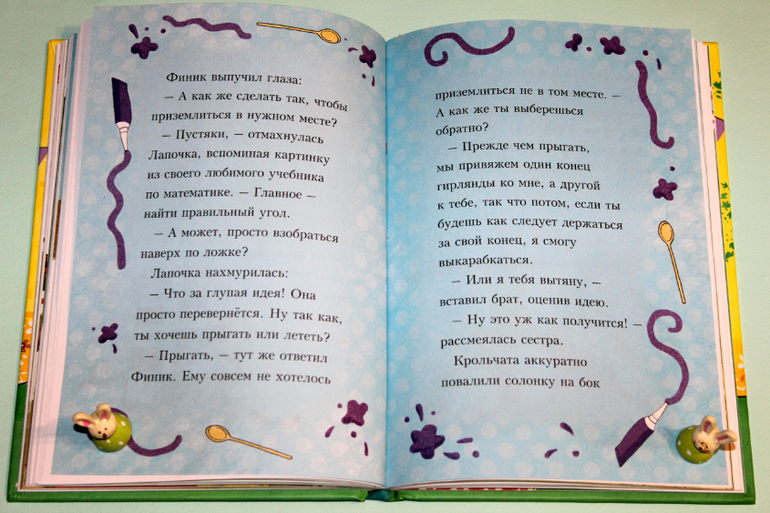 Финик выпучил глаза:
— А как же сделать так, чтобы
приземлиться в нужном месте?
— Пустяки, — отмахнулась
Лапочка, вспоминая картинку
из своего любимого учебника
по математике. — Главное —
найти правильный угол.
— А может, просто взобраться
наверх по ложке?
Лапочка нахмурилась:
— Что за глупая идея! Она
просто перевернётся. Ну так как,
ты хочешь прыгать или лететь?
— Прыгать, — тут же ответил
Финик. Ему совсем не хотелось
приземлиться не в том месте. —
А как же ты выберешься
обратно?
— Прежде чем прыгать,
мы привяжем один конец
гирлянды ко мне, а другой
к тебе, так что потом, если ты
будешь как следует держаться
за свой конец, я смогу
выкарабкаться.
— Или я тебя вытяну, —
вставил брат, оценив идею.
— Ну это уж как получится! —
рассмеялась сестра.
Крольчата аккуратно
повалили солонку на бок